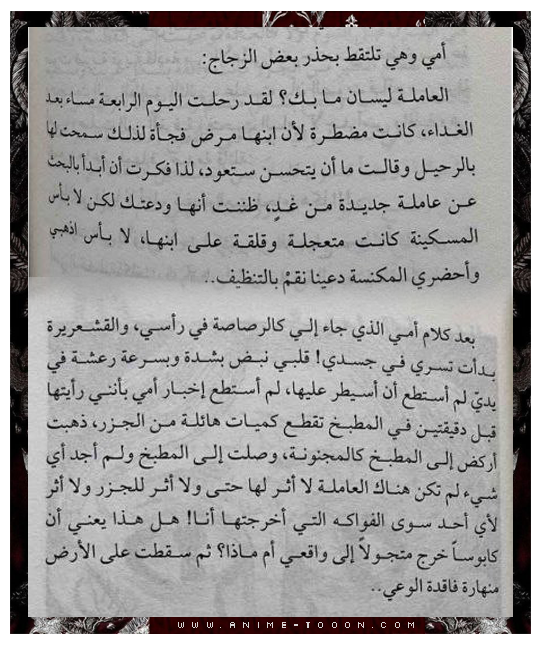 أمي وهي تلتقط بحذر بعض الزجاج:
العاملة ليسان ما بك؟ لقد رحلت اليوم الرابعة مساء بعد
الغداء، كانت مضطرة لأن ابنها مرض فجأة لذلك سمحت لها
بالرحيل وقالت ما أن يتحسن ستعود، لذا فكرت أن أبدأ بالبحث
عن عاملة جديدة من غدٍ، ظننت أنها ودعتك لكن لا بأس
المسكينة كانت متعجلة وقلقة على ابنها، لا بأس اذهبي
وأحضري المكنسة دعينا نقمْ بالتنظيف..
بعد كلام أمي الذي جاء إلي كالرصاصة في رأسي، والقشعريرة
بدأت تسري في جسدي! قلبي نبض بشدة وبسرعة رعشة في
يديّ لم أستطع أن أسيطر عليها، لم أستطع إخبار أمي بأنني رأيتها
قبل دقيقتين في المطبخ تقطع كميات هائلة من الجزر، ذهبت
أركض إلى المطبخ كالمجنونة، وصلت إلى المطبخ ولم أجد أي
شيء لم تكن هناك العاملة لا أثر لها حتى ولا أثر للجزر ولا أثر
لأي أحد سوى الفواكه التي أخرجتها أنا! هل هذا يعني أن
كابوساً خرج متجولاً إلى واقعي أم ماذا؟ ثم سقطت على الأرض
منهارة فاقدة الوعي..
WWW.ANIME-TOOON.COM